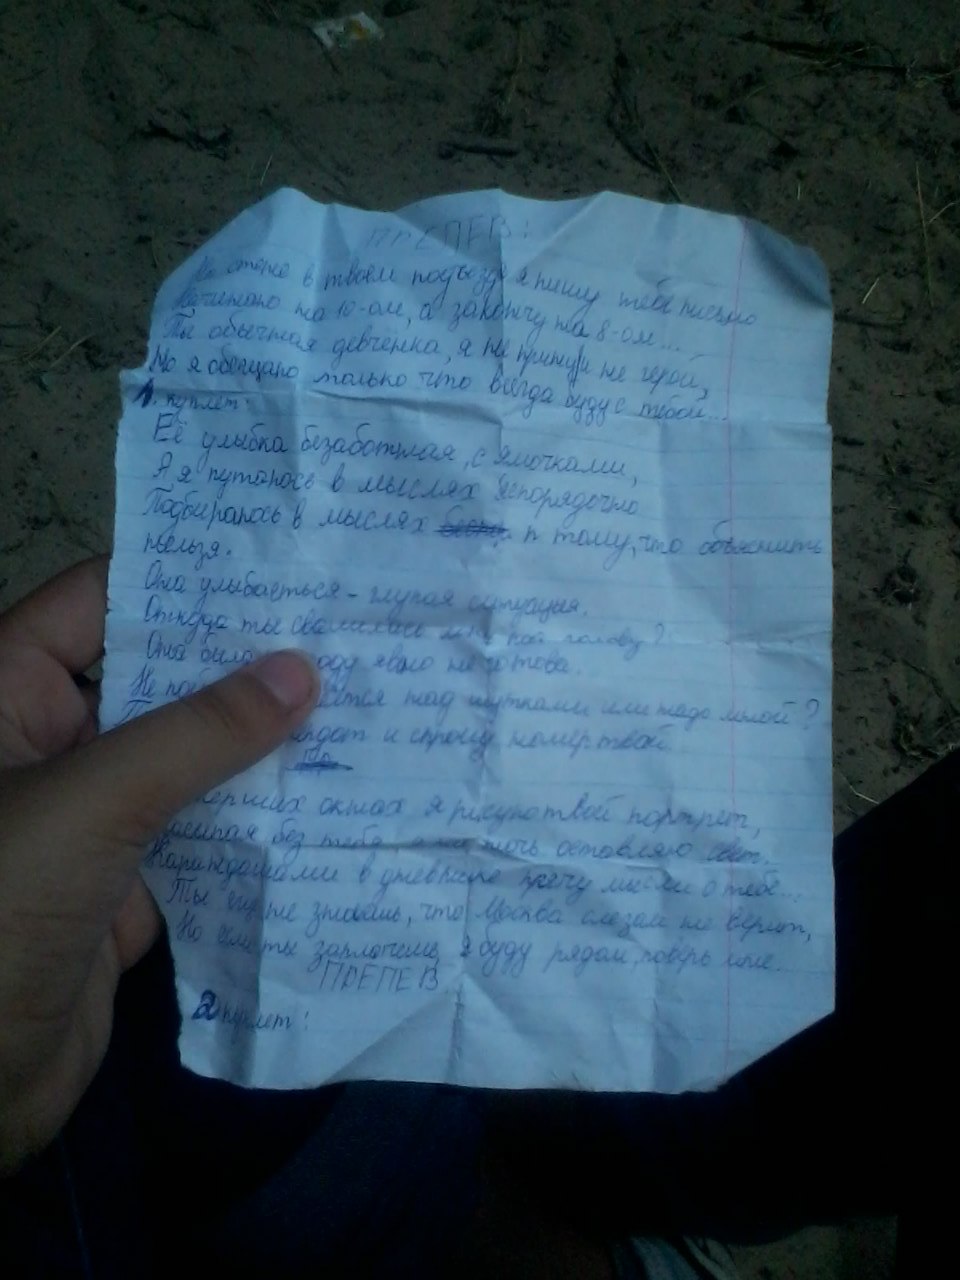 ПРЕПЕВ:
На стене в твоём подъезде я пишу тебе письмо
Начинаю на 10-ом, а закончу на 8-ом...
Ты обычная девчёнка, я не принц и не герой,
Но я обещаю только что всегда буду с тобой...
1. куплет:
Её улыбка безаботная, с ямочками,
А я путаюсь в мыслях
Подбираюсь в мыслях к тому, что объяснить
нельзя.
Она улыбаеться - глупая ситуация.
Откуда ты свалилась мне на голову?
Она была явно не готова.
Не над шутками или надо мной?
и спрошу номер твой
окнах я рисую твой портрет,
без тебя ночь оставляю свет.
Карандашами в дневнике прячу мысли о тебе...
Ты ещё не знаешь, что Москва слезам не верит,
Но если ты заплачешь, я буду рядом, поверь мне...
ПРЕПЕВ
2 куплет: